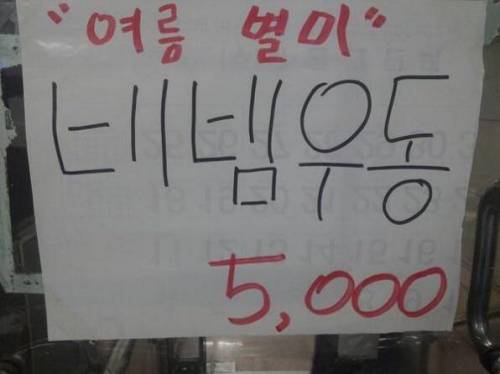 "여름 별미"
네넴우동
5,000